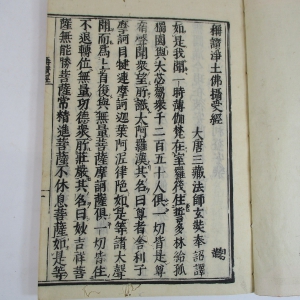 稱讃淨土佛攝受經
大唐三藏法師玄奘奉 詔譯
如是我聞一時薄伽梵在室羅筏住誓多林給孤
獨園與大苾蒭衆千二百五十人俱一切皆是尊
宿聲聞衆望所識大阿羅漢其名曰尊者舍利子
摩訶目犍連摩訶迦葉阿泥律陀如是等諸大聲
聞而爲上首復與無量菩薩摩訶薩俱一切皆住
不退轉位無量功德衆所莊嚴其名曰妙吉祥菩
薩無能勝菩薩常精進菩薩不休息菩薩如是等